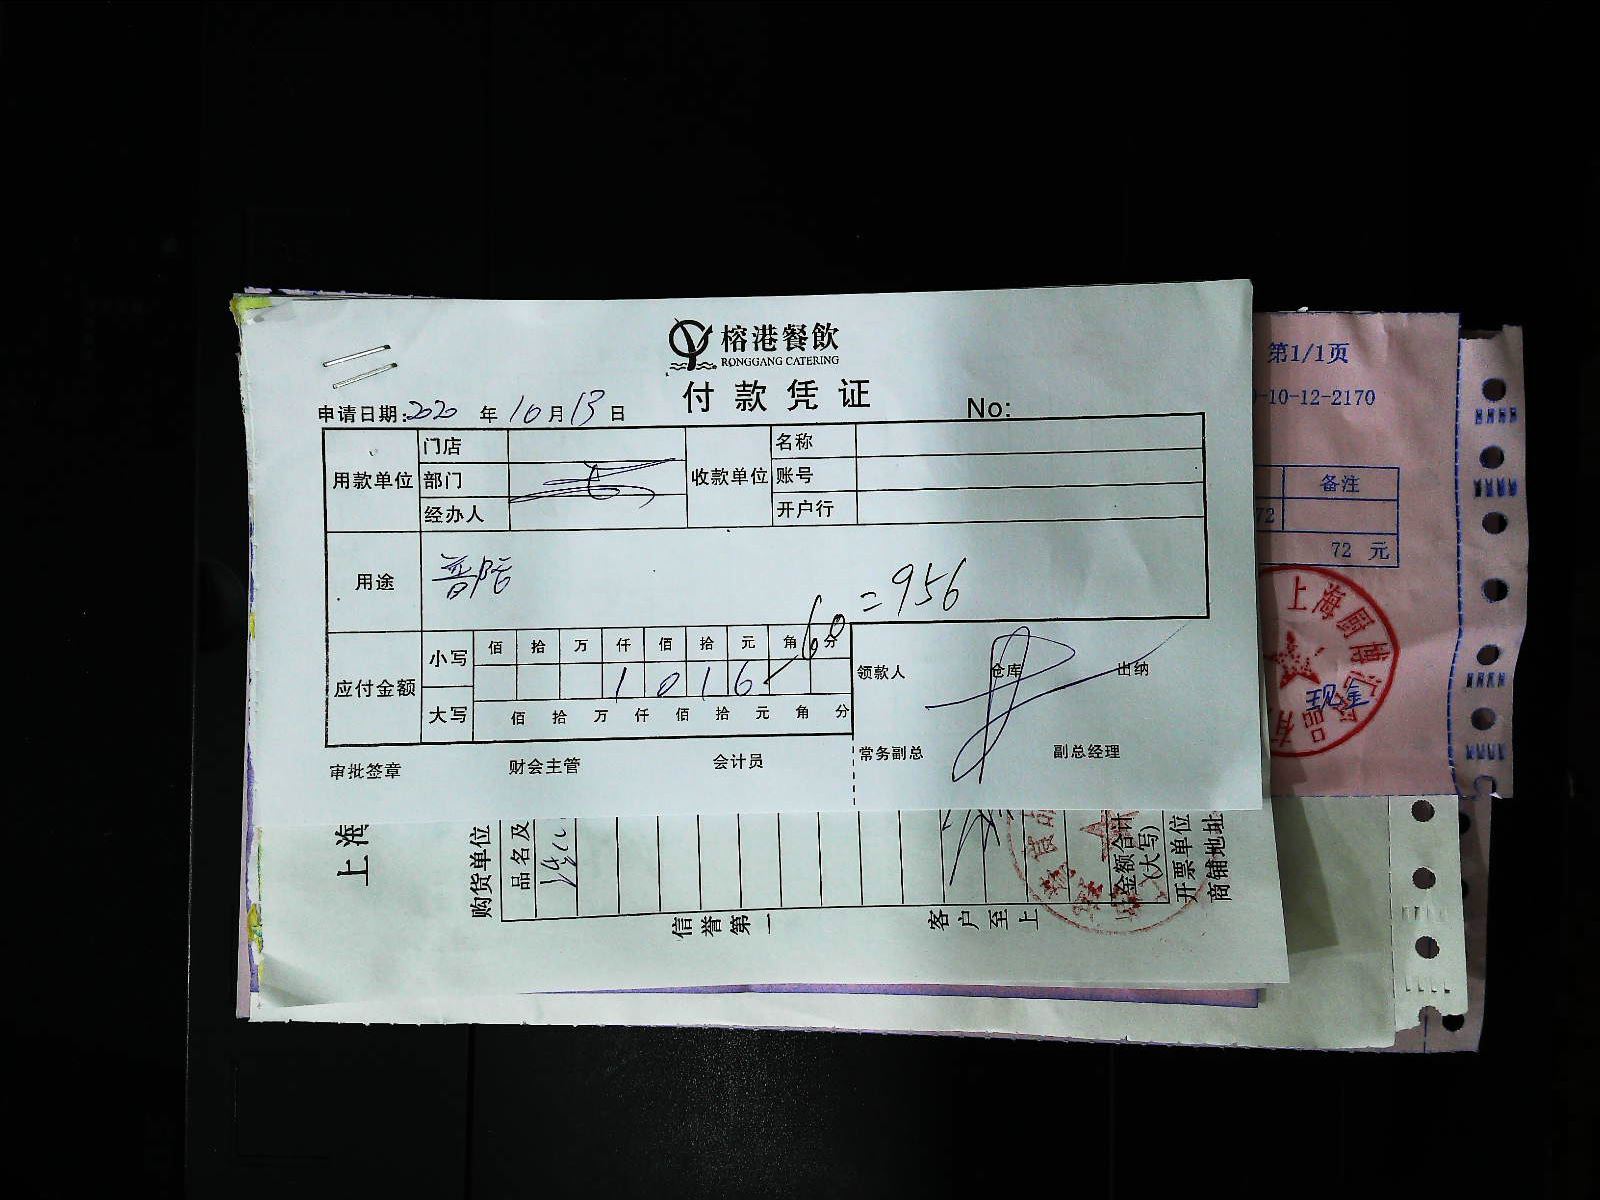 榕港餐飲
RONGGANG CATERING
付款凭证
申请日期:2020 年 10 月 13 日
No:
用款单位 门店
部门
经办人
收款单位 名称
账号
开户行
用途 普陀
= 956
- 60
应付金额 小写 佰 拾 万 仟 佰 拾 元 角 分
1 0 1 6
大写 佰 拾 万 仟 佰 拾 元 角 分
领款人 仓库 出纳
审批签章 财会主管 会计员 常务副总 副总经理
第1/1页
-10-12-2170
备注
72
72 元
上海厨
现金
上海
购货单位
品名及
信誉第一
客户至上
金额合计
(大写)
开票单位
商铺地址